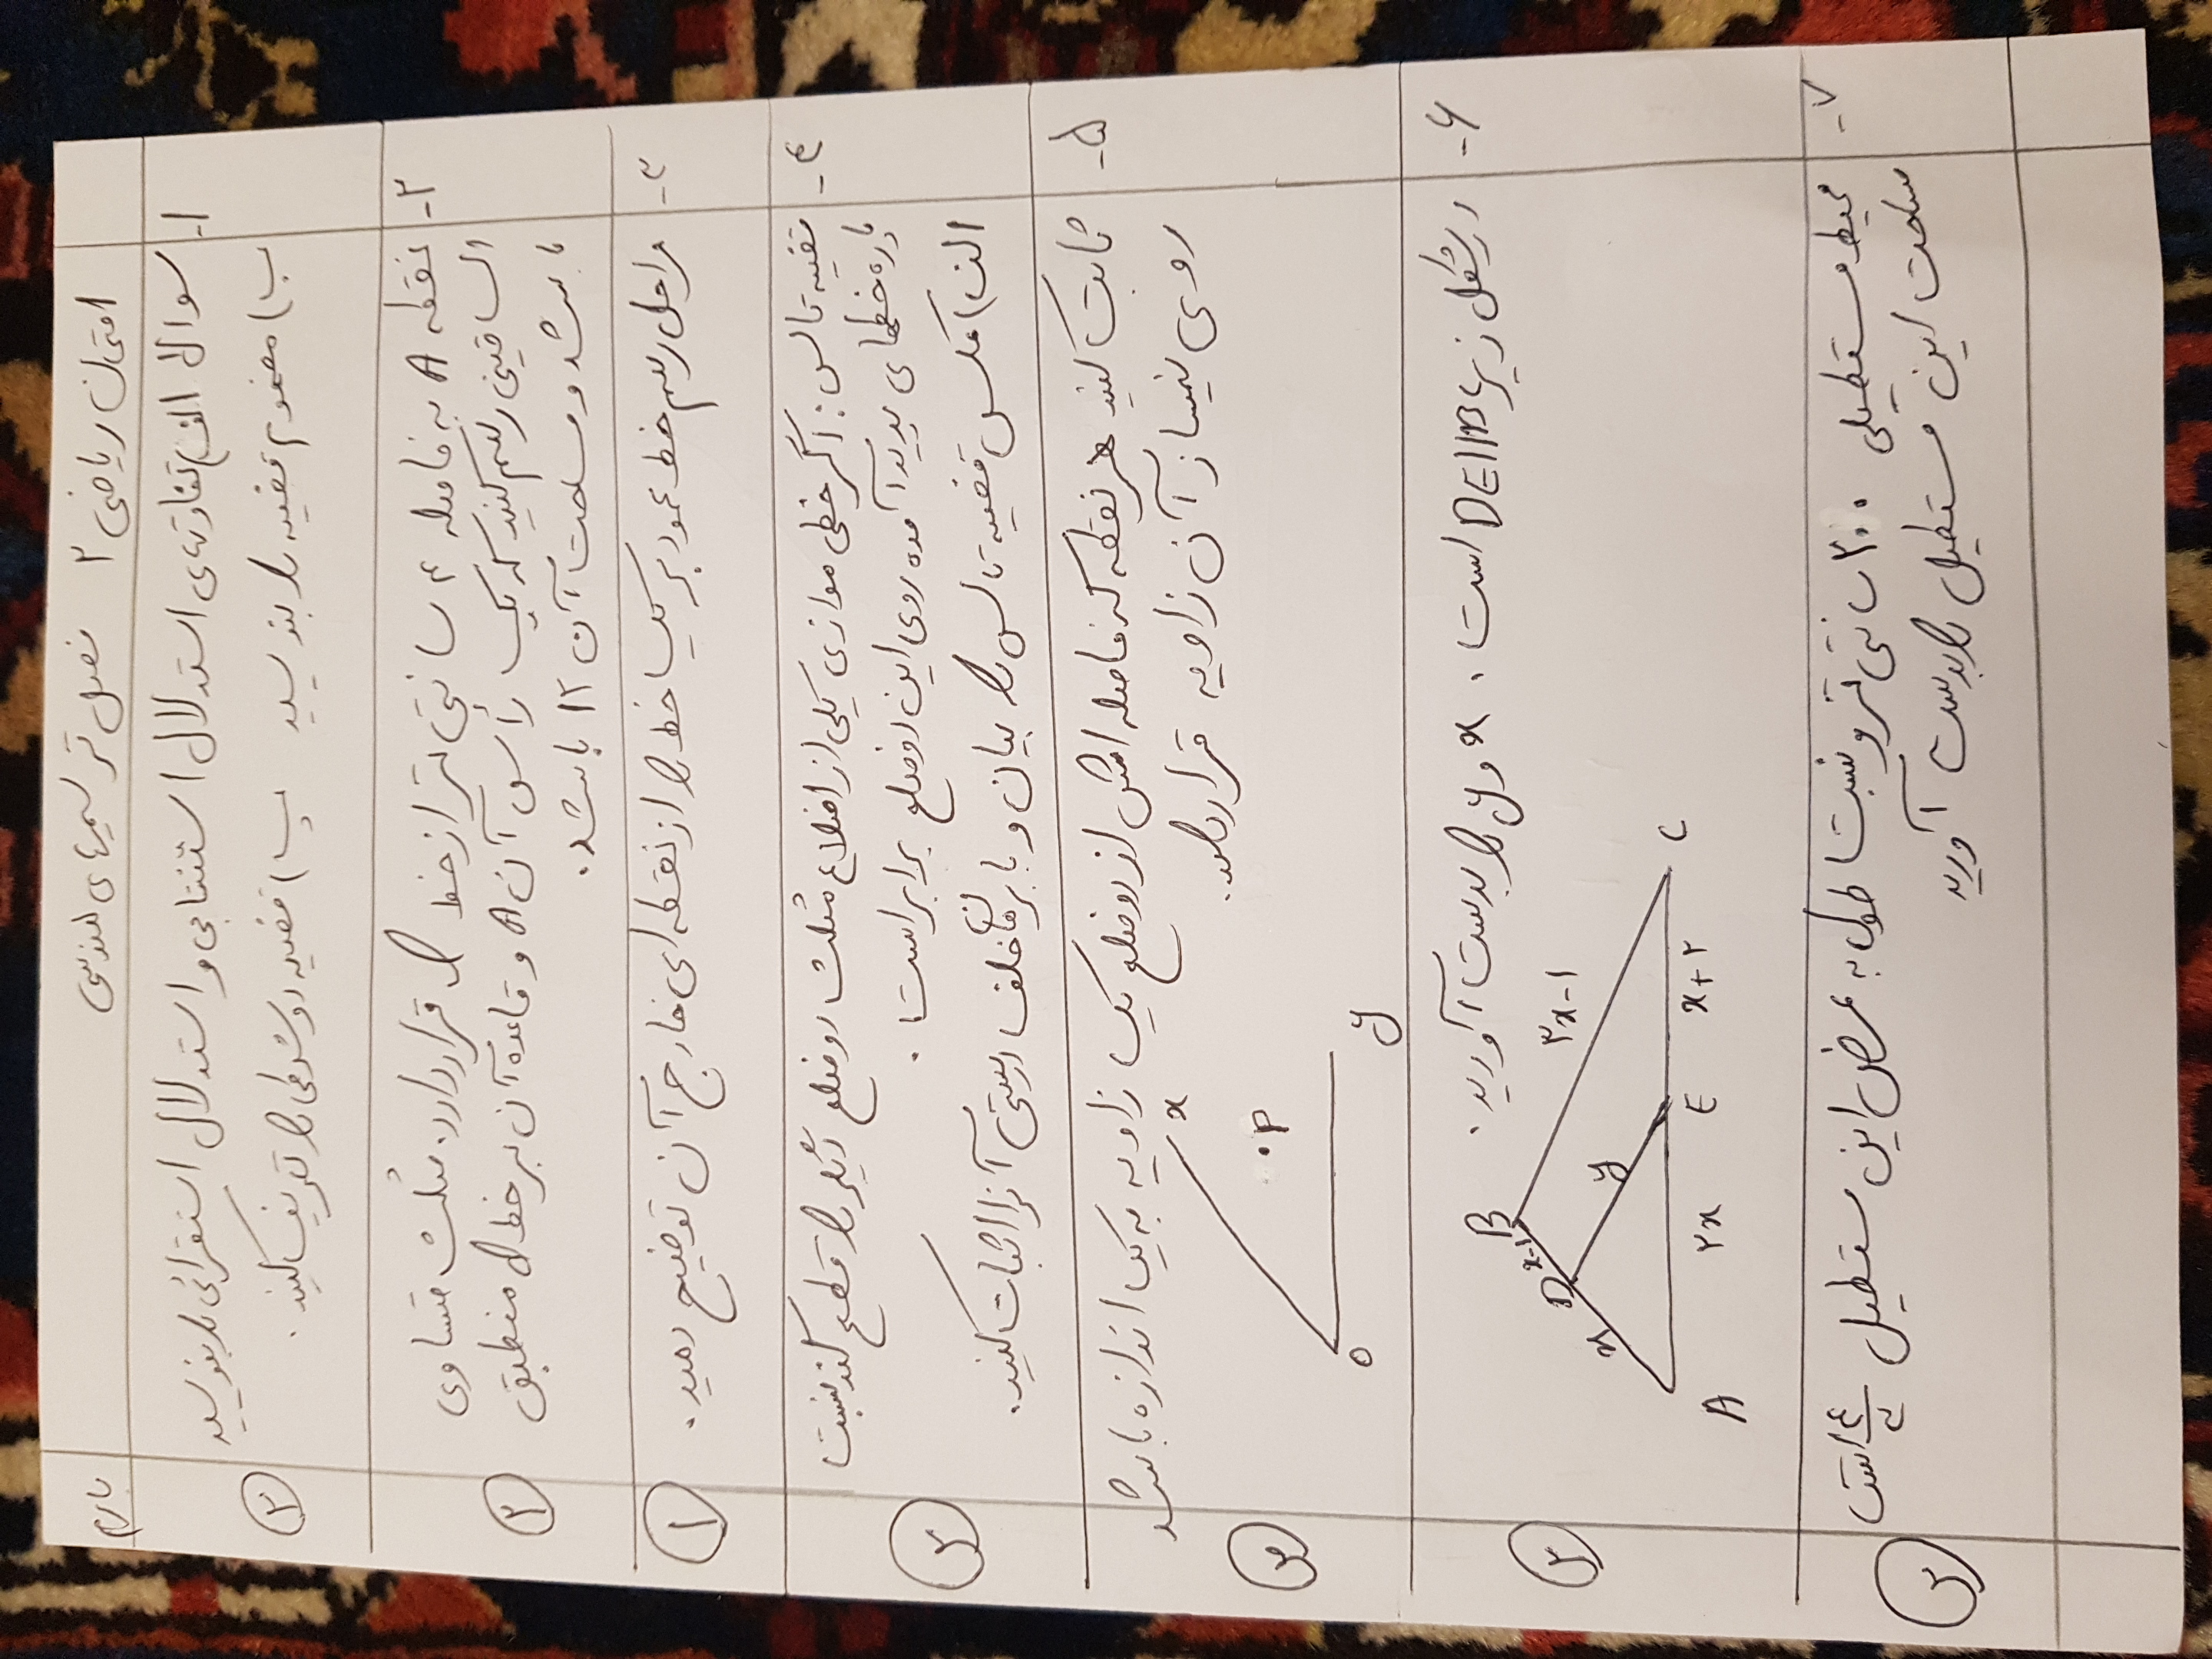 امتحان ریاضی ۲ فصل ترسیم‌های هندسی
بارم
۱- سوال الف) تفاوت‌های استدلال استنتاجی و استدلال استقرائی را بنویسید
ب) مفهوم قضیه را بنویسید پ) قضیه دو شرطی را تعریف کنید.
۲
۲- نقطه A به فاصله ۴ سانتی متر از خط d قرار دارد. مثلث متساوی
الساقینی رسم کنید که یک رأس آن A و قاعده آن بر خط d منطبق
باشد و مساحت آن ۱۲ باشد.
۲
۳- مراحل رسم خط عمود بر یک خط را از نقطه‌ای خارج آن توضیح دهید.
۱
۴- قضیه تالس: اگر خطی موازی یکی از اضلاع مثلث دو ضلع دیگر را قطع کند نسبت
پاره خطهای پدید آمده روی این دو ضلع برابر است.
الف) عکس قضیه تالس را بیان و با برهان خلف درستی آنرا اثبات کنید.
۳
۵- ثابت کنید هر نقطه که فاصله اش از دو ضلع یک زاویه به یک اندازه باشد
روی نیمساز آن زاویه قرار دارد.
x
P
O
y
۳
۶- در شکل زیر DE||BC است. x و y را بدست آورید.
B
x-1
D
x
۳x-1
y
A
۲x
E
x+۲
C
۲
۷- محیط مستطیلی ۲۰۰ سانتی متر و نسبت طول به عرض این مستطیل است
مساحت این مستطیل را بدست آورید
۲